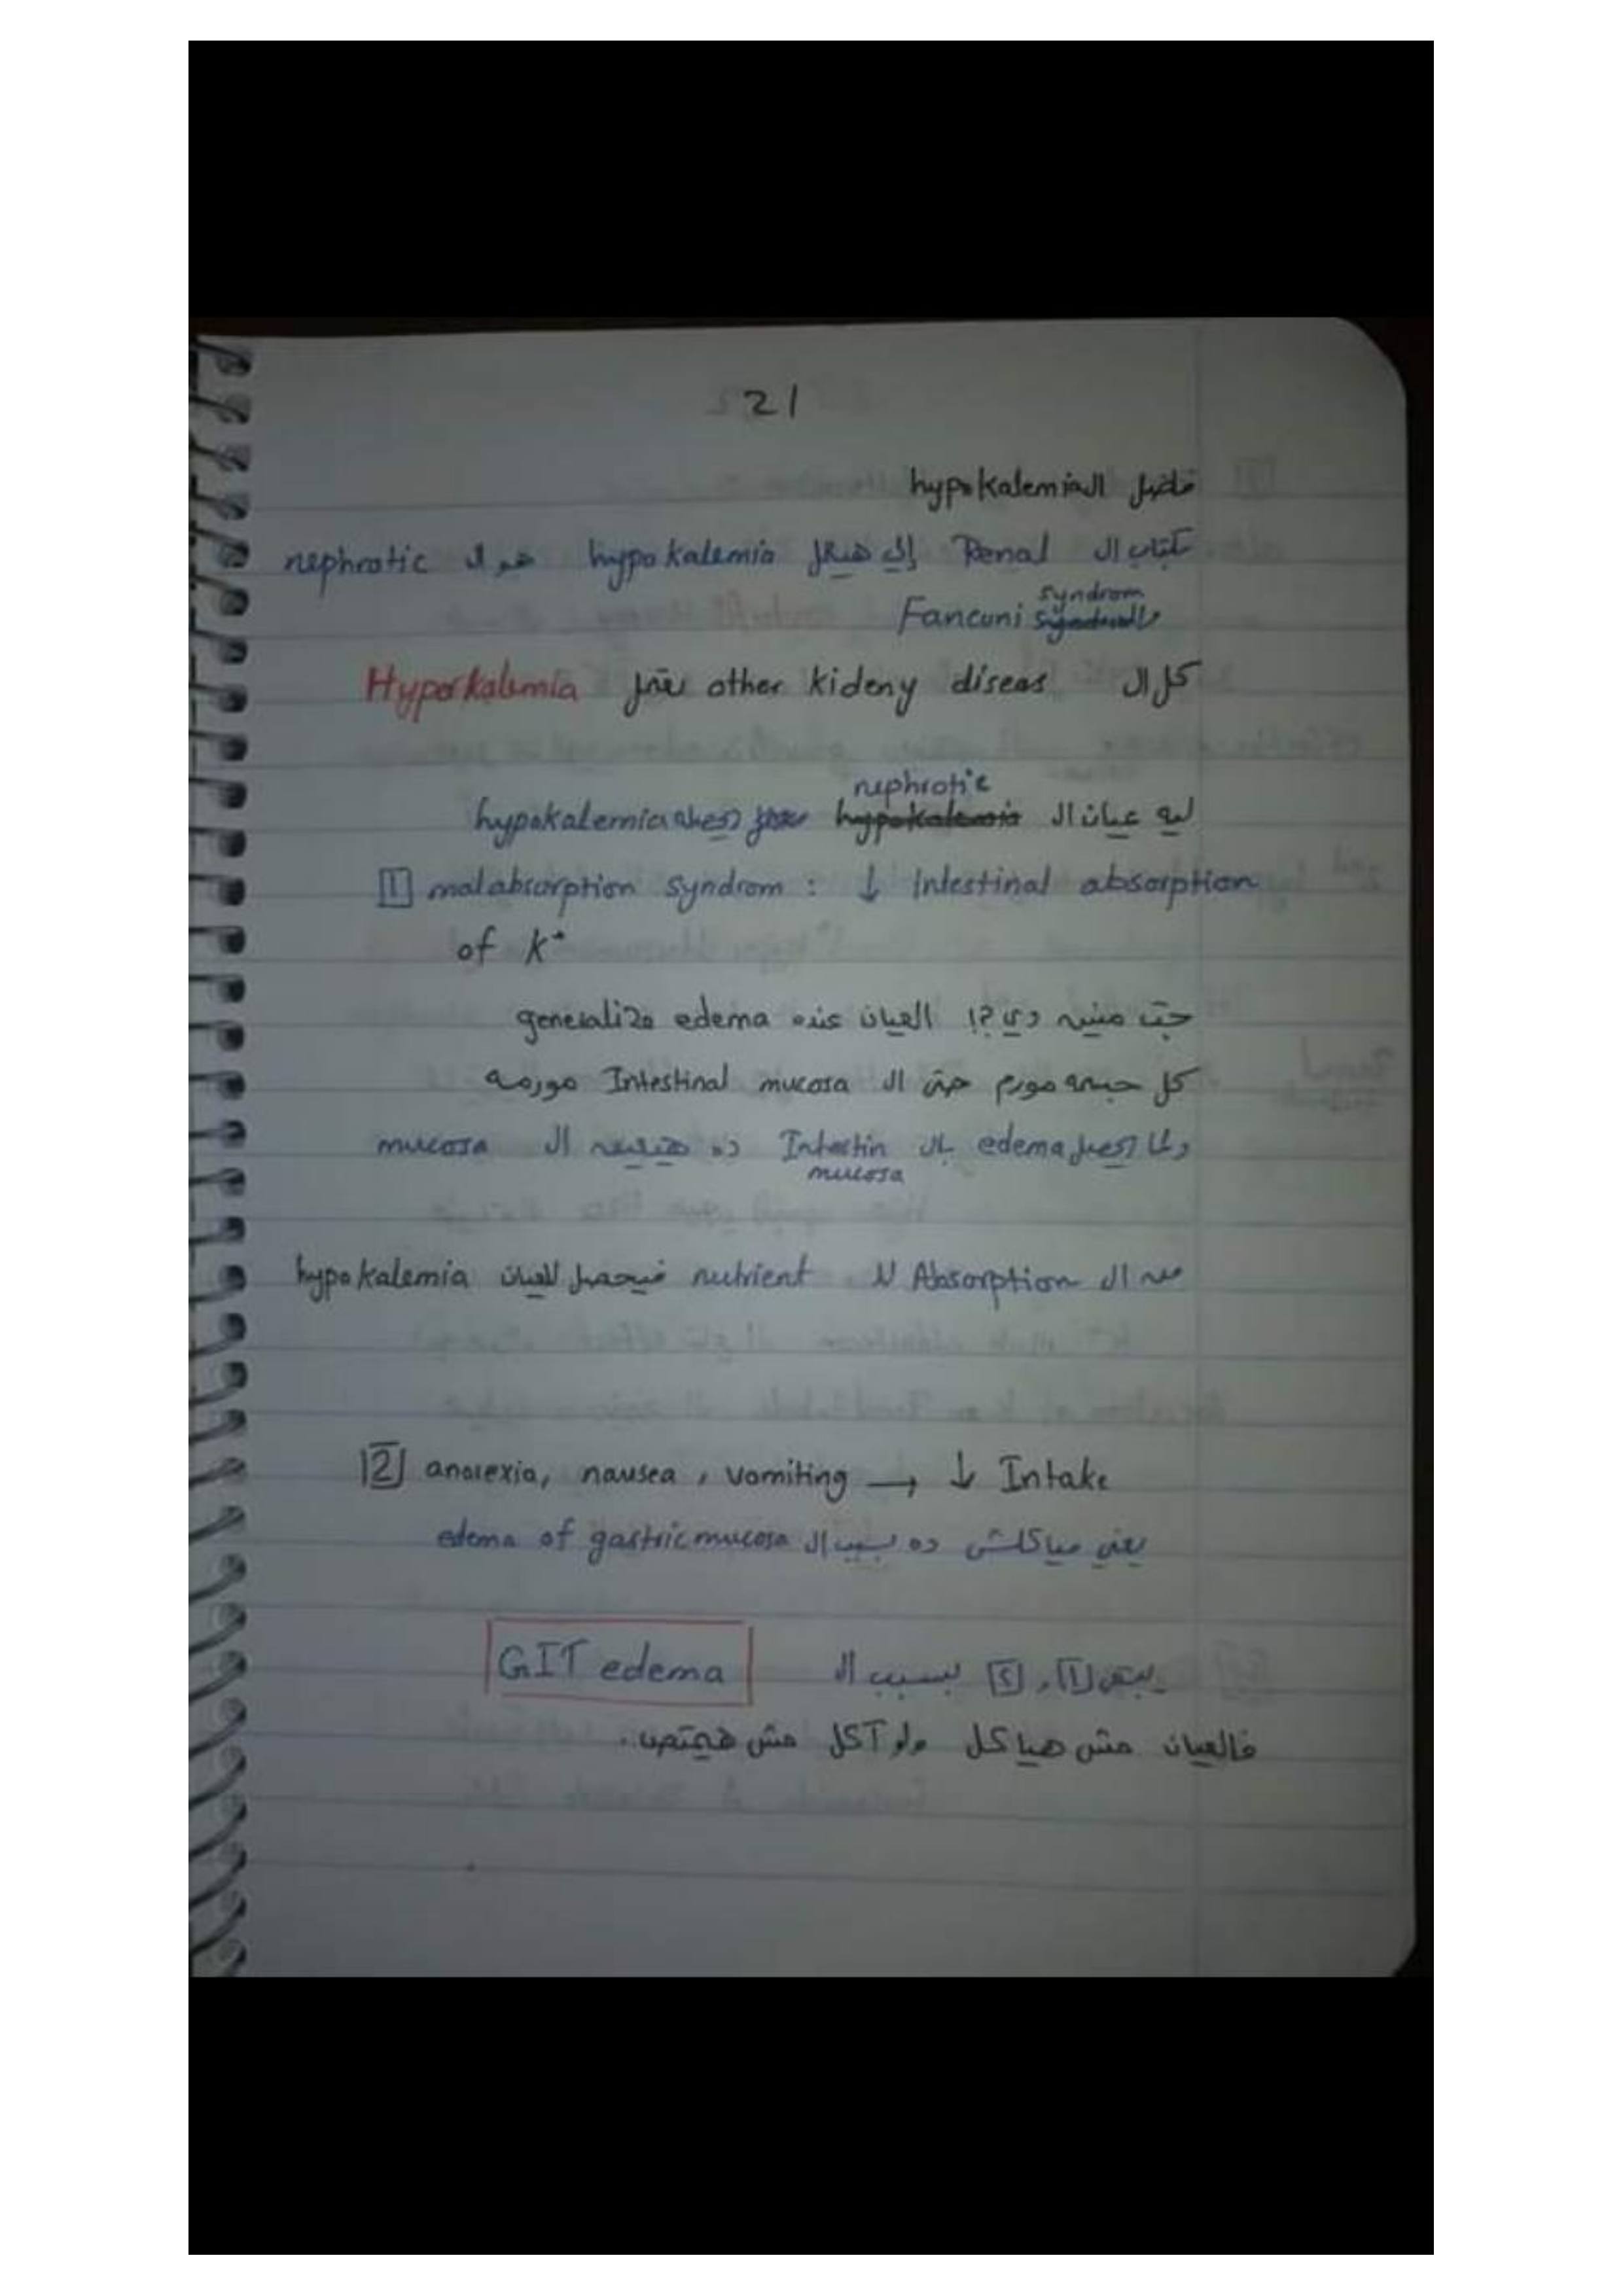 21
فاضل الـ hypokalemia
كتاب ال Renal إلى هيعمل hypokalemia هو ال nephrotic
syndrom
Fanconi
كل ال other kideny diseas بتعمل Hyperkalemia
nephrotic
ليه عيان ال hypokalemia يحصله hypokalemia
[1] malabsorption syndrom : ↓ Intestinal absorption
of K+
جت منين دي ؟! العيان عنده generalize edema
كل جسمه مورم حتى ال Intestinal mucosa مورمه
ولما يحصل edema بال Intestin ده هيمنع ال mucosa
mucosa
من ال Absorption لل nutrient فيحصل للعيان hypokalemia
[2] anorexia, nausea, vomiting → ↓ Intake
يعني مياكلش ده بسبب ال edema of gastric mucosa
يبقى [1] و [2] بسبب ال GIT edema
فالعيان مش هياكل ولو آكل مش هيمتص.